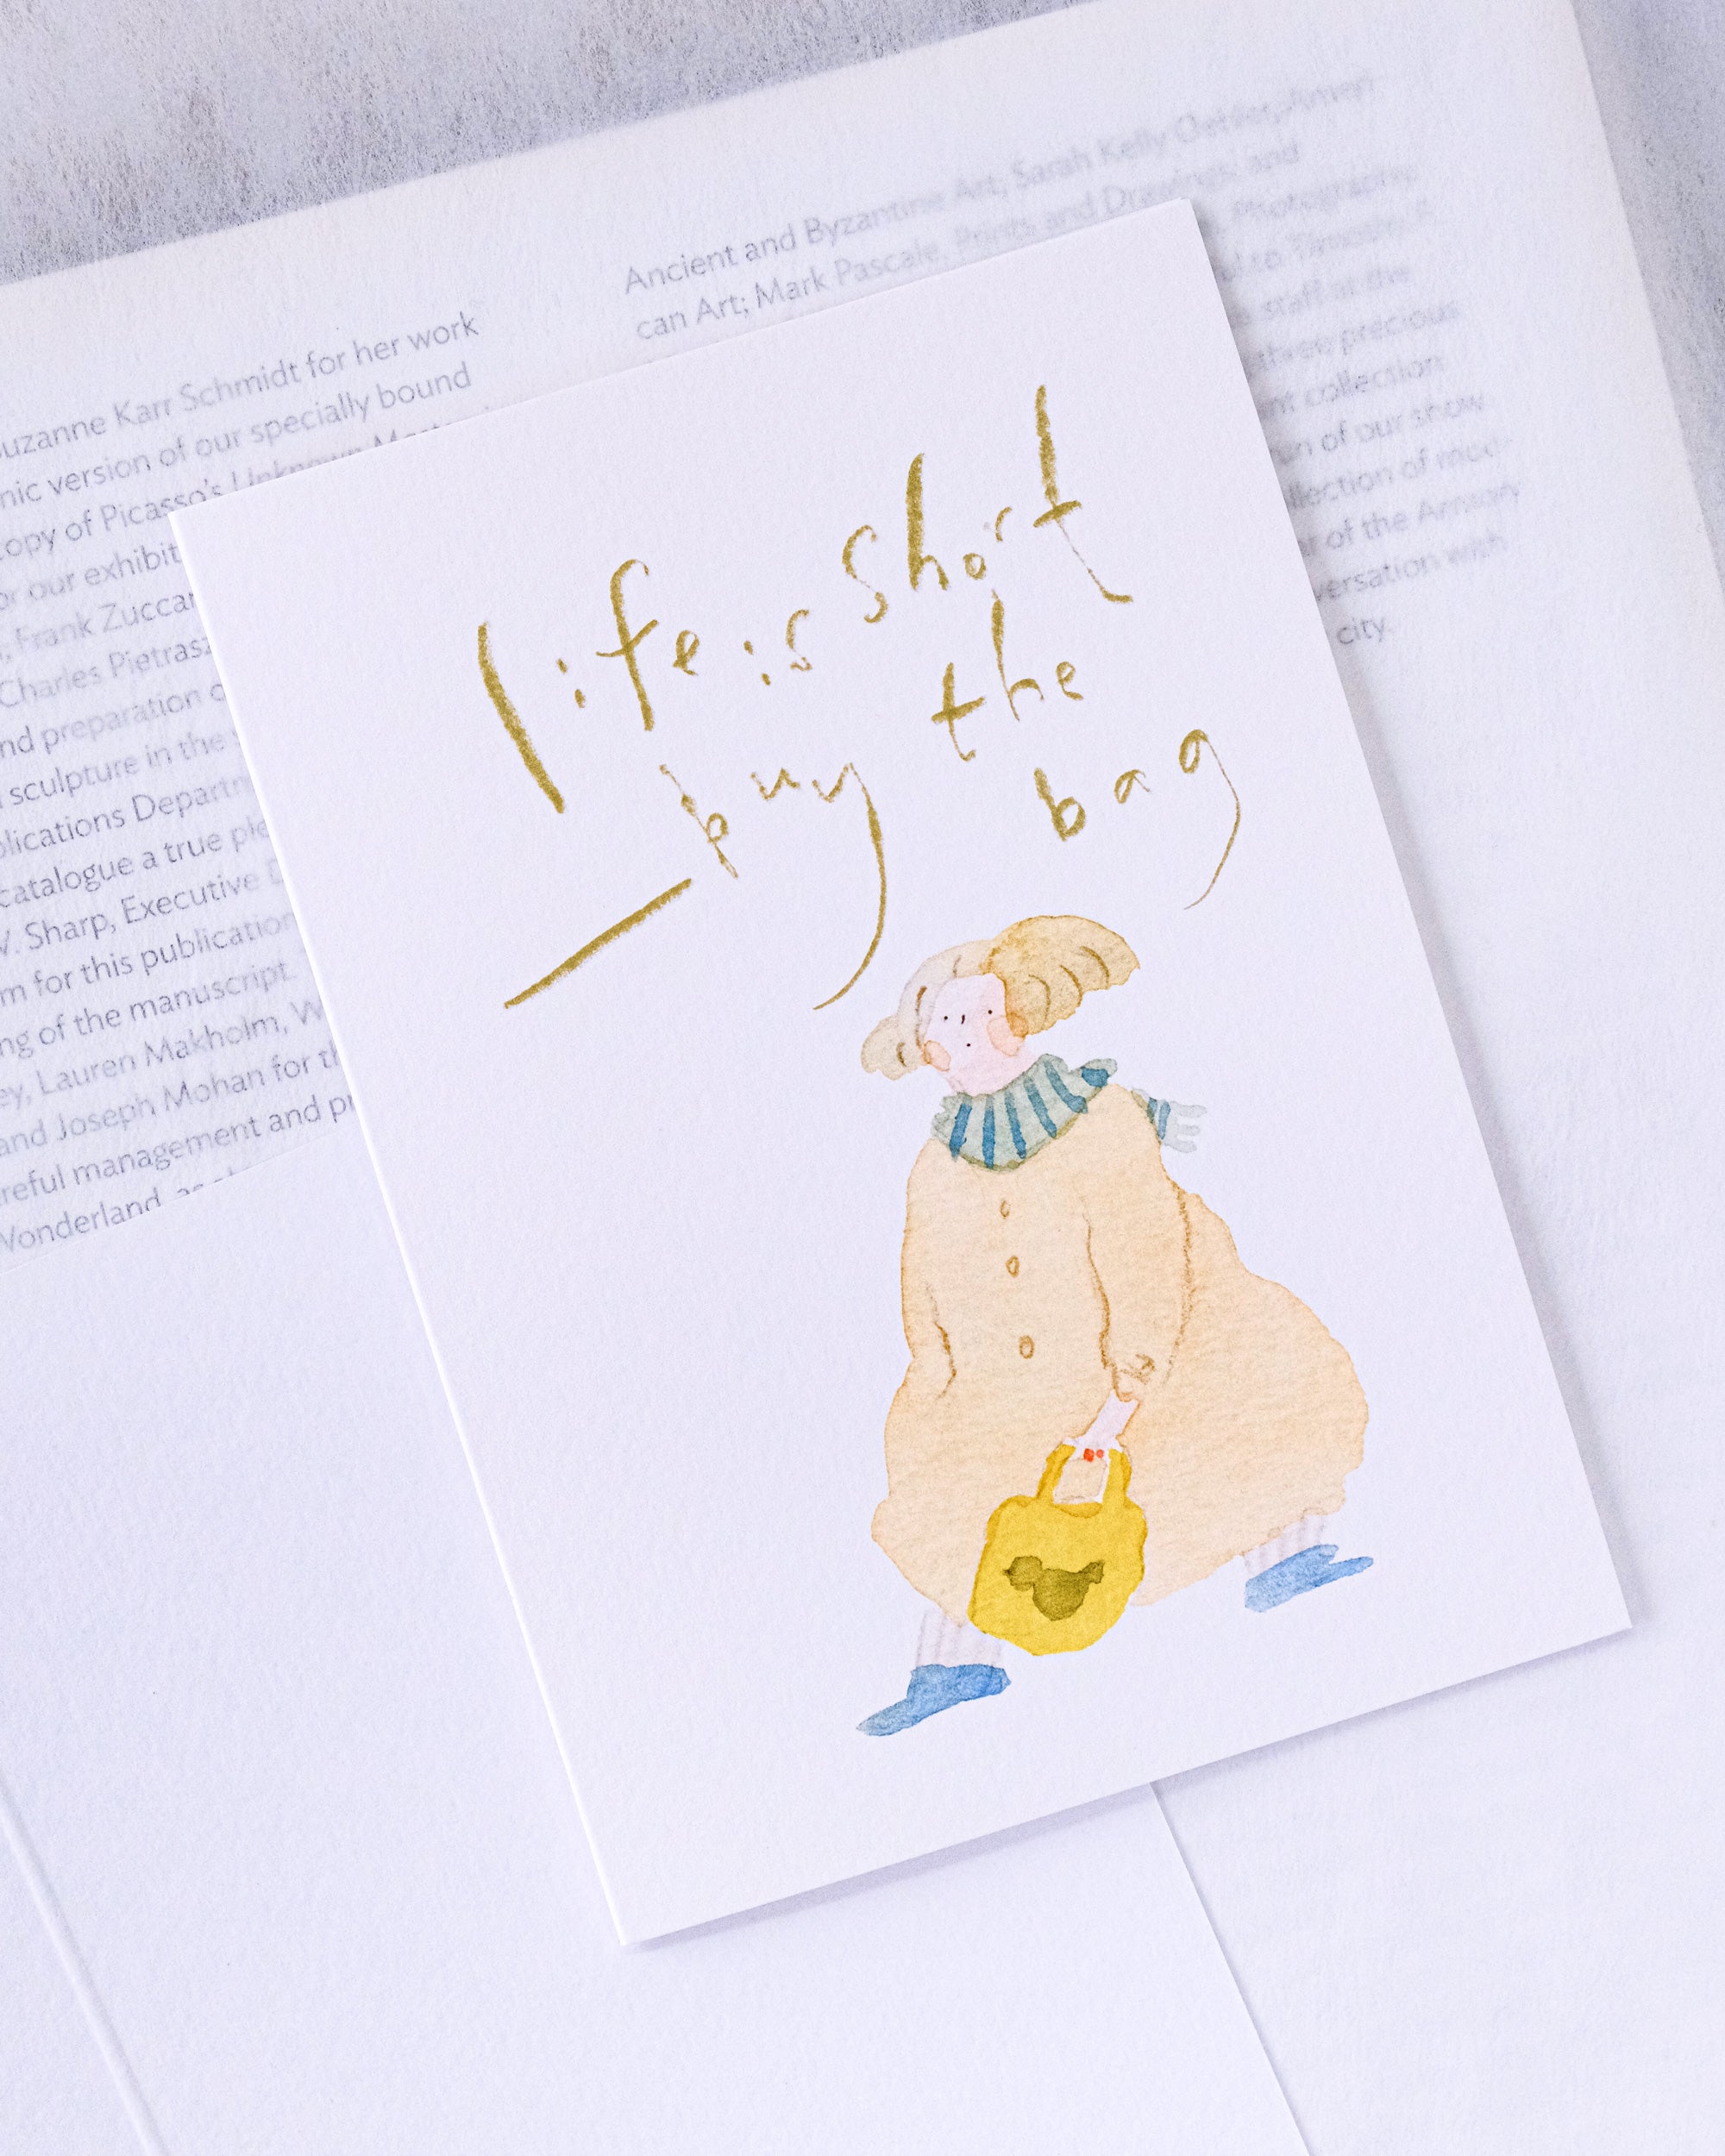 life is short
buy the
bag
Suzanne Karr Schmidt for her work
nic version of our specially bound
copy of Picasso's Unknown
or our exhibit
Frank Zuccar
Charles Pietrasz
nd preparation
sculpture in the
blications Departm
catalogue a true ple
W. Sharp, Executive D
m for this publication
ng of the manuscript.
ey, Lauren Makholm, W
and Joseph Mohan for th
reful management and pr
Wonderland, as
Ancient and Byzantine Art; Sarah Kelly Oehler, Ameri
can Art; Mark Pascale, Prints and Drawings; and
Photography.
to Timothy
staff at the
three precious
nt collection
n of our show.
llection of mod
r of the Arman
versation with
city.